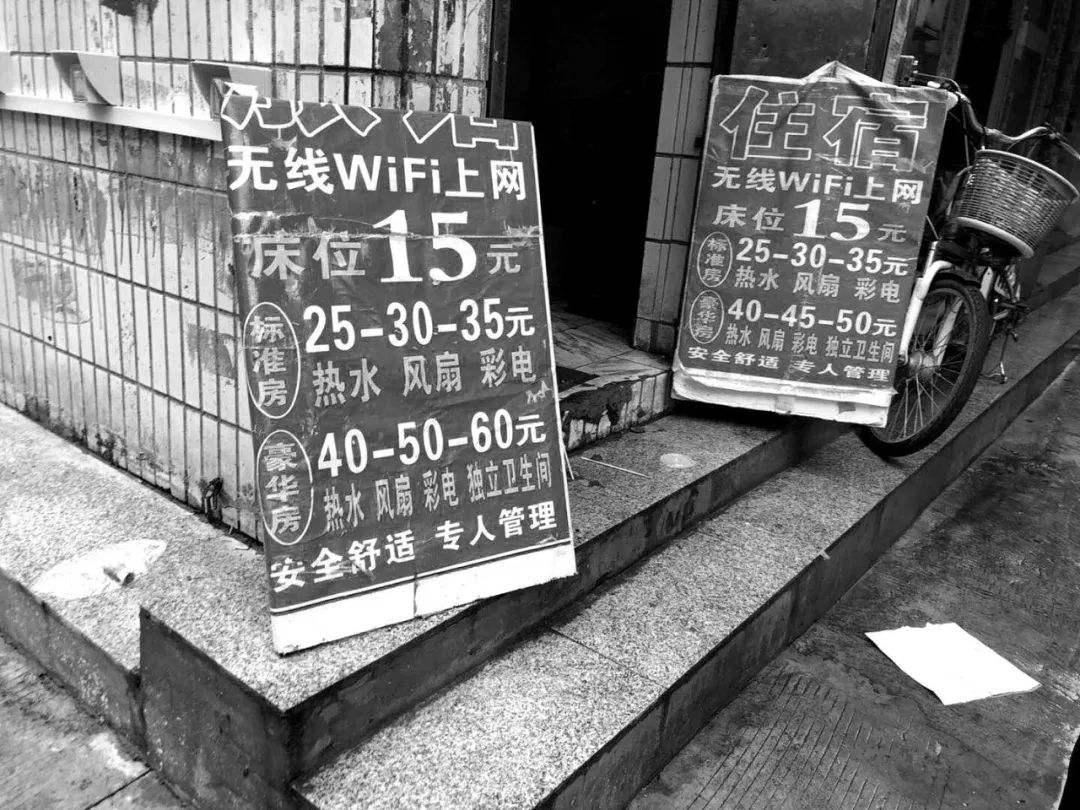 无线WiFi上网
床位15元
标准房
25-30-35元
热水 风扇 彩电
豪华房
40-50-60元
热水 风扇 彩电 独立卫生间
安全舒适 专人管理
住宿
无线WiFi上网
床位15元
标准房
25-30-35元
热水 风扇 彩电
豪华房
40-45-50元
热水 风扇 彩电 独立卫生间
安全舒适 专人管理